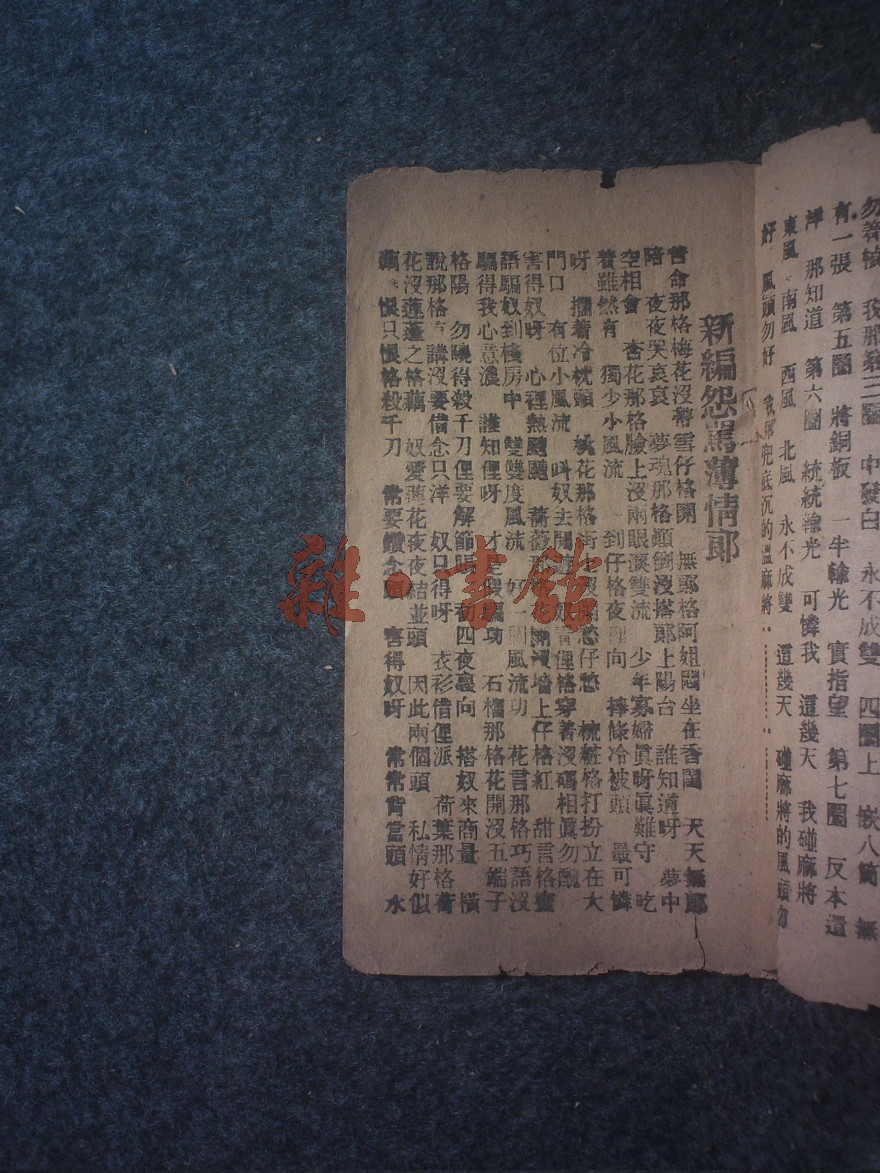 勿着槓 我那第三圈 中發白 永不成雙 四圈上 嵌八筒 無
有一張 第五圈 將銅板 一半輸光 實指望 第七圈 反本還
洋 那知道 第六圈 統統輸光 可憐我 這幾天 我碰麻將
東風 南風 西風 北風 永不成雙 這幾天 碰麻將的風頭勿
好 風頭勿好 兜底沉的溫麻將
新編怨罵薄情郎
苦命那格梅花沒帶雪仔格開 無郎格阿姐悶坐在香閨 天天無郎
陪 夜夜哭哀哀 夢魂那格顛倒沒搭郎上陽台 誰知道呀 夢中
空相會 杏花那格臉上沒兩眼淚雙流 少年寡婦眞呀眞難守 吃
着雖然有 獨少小風流 到仔格夜裏向 捧條冷被頭 最可憐
呀 擱着冷枕頭 桃花那格 沒 愁仔愁 梳粧格打扮立在大
門口 有位小風流 叫奴去開 俚格穿着沒碼相眞勿醜
害得奴呀 心裡熱颼颼 薔薇 沒墙上仔格紅 甜言格蜜
語騙奴到棧房中 雙雙度風流 好一個風流功 花言那格巧語沒
騙得我心意濃 誰知俚呀 才是 騙功 石榴那格花開沒五端子
格陽 勿曉得殺千刀俚要解節賬 初四夜裏向 搭奴來商量 橫
說那格 講沒要借念只洋 奴只得呀 衣衫借俚派 荷葉那格荷
花沒蓮蓬之格藕 奴愛蓮花夜夜結並頭 因此兩個頭 私情好似
藕 恨只恨格殺千刀 常要鑽念頭 害得奴呀 常常背當頭 水
雜·書館